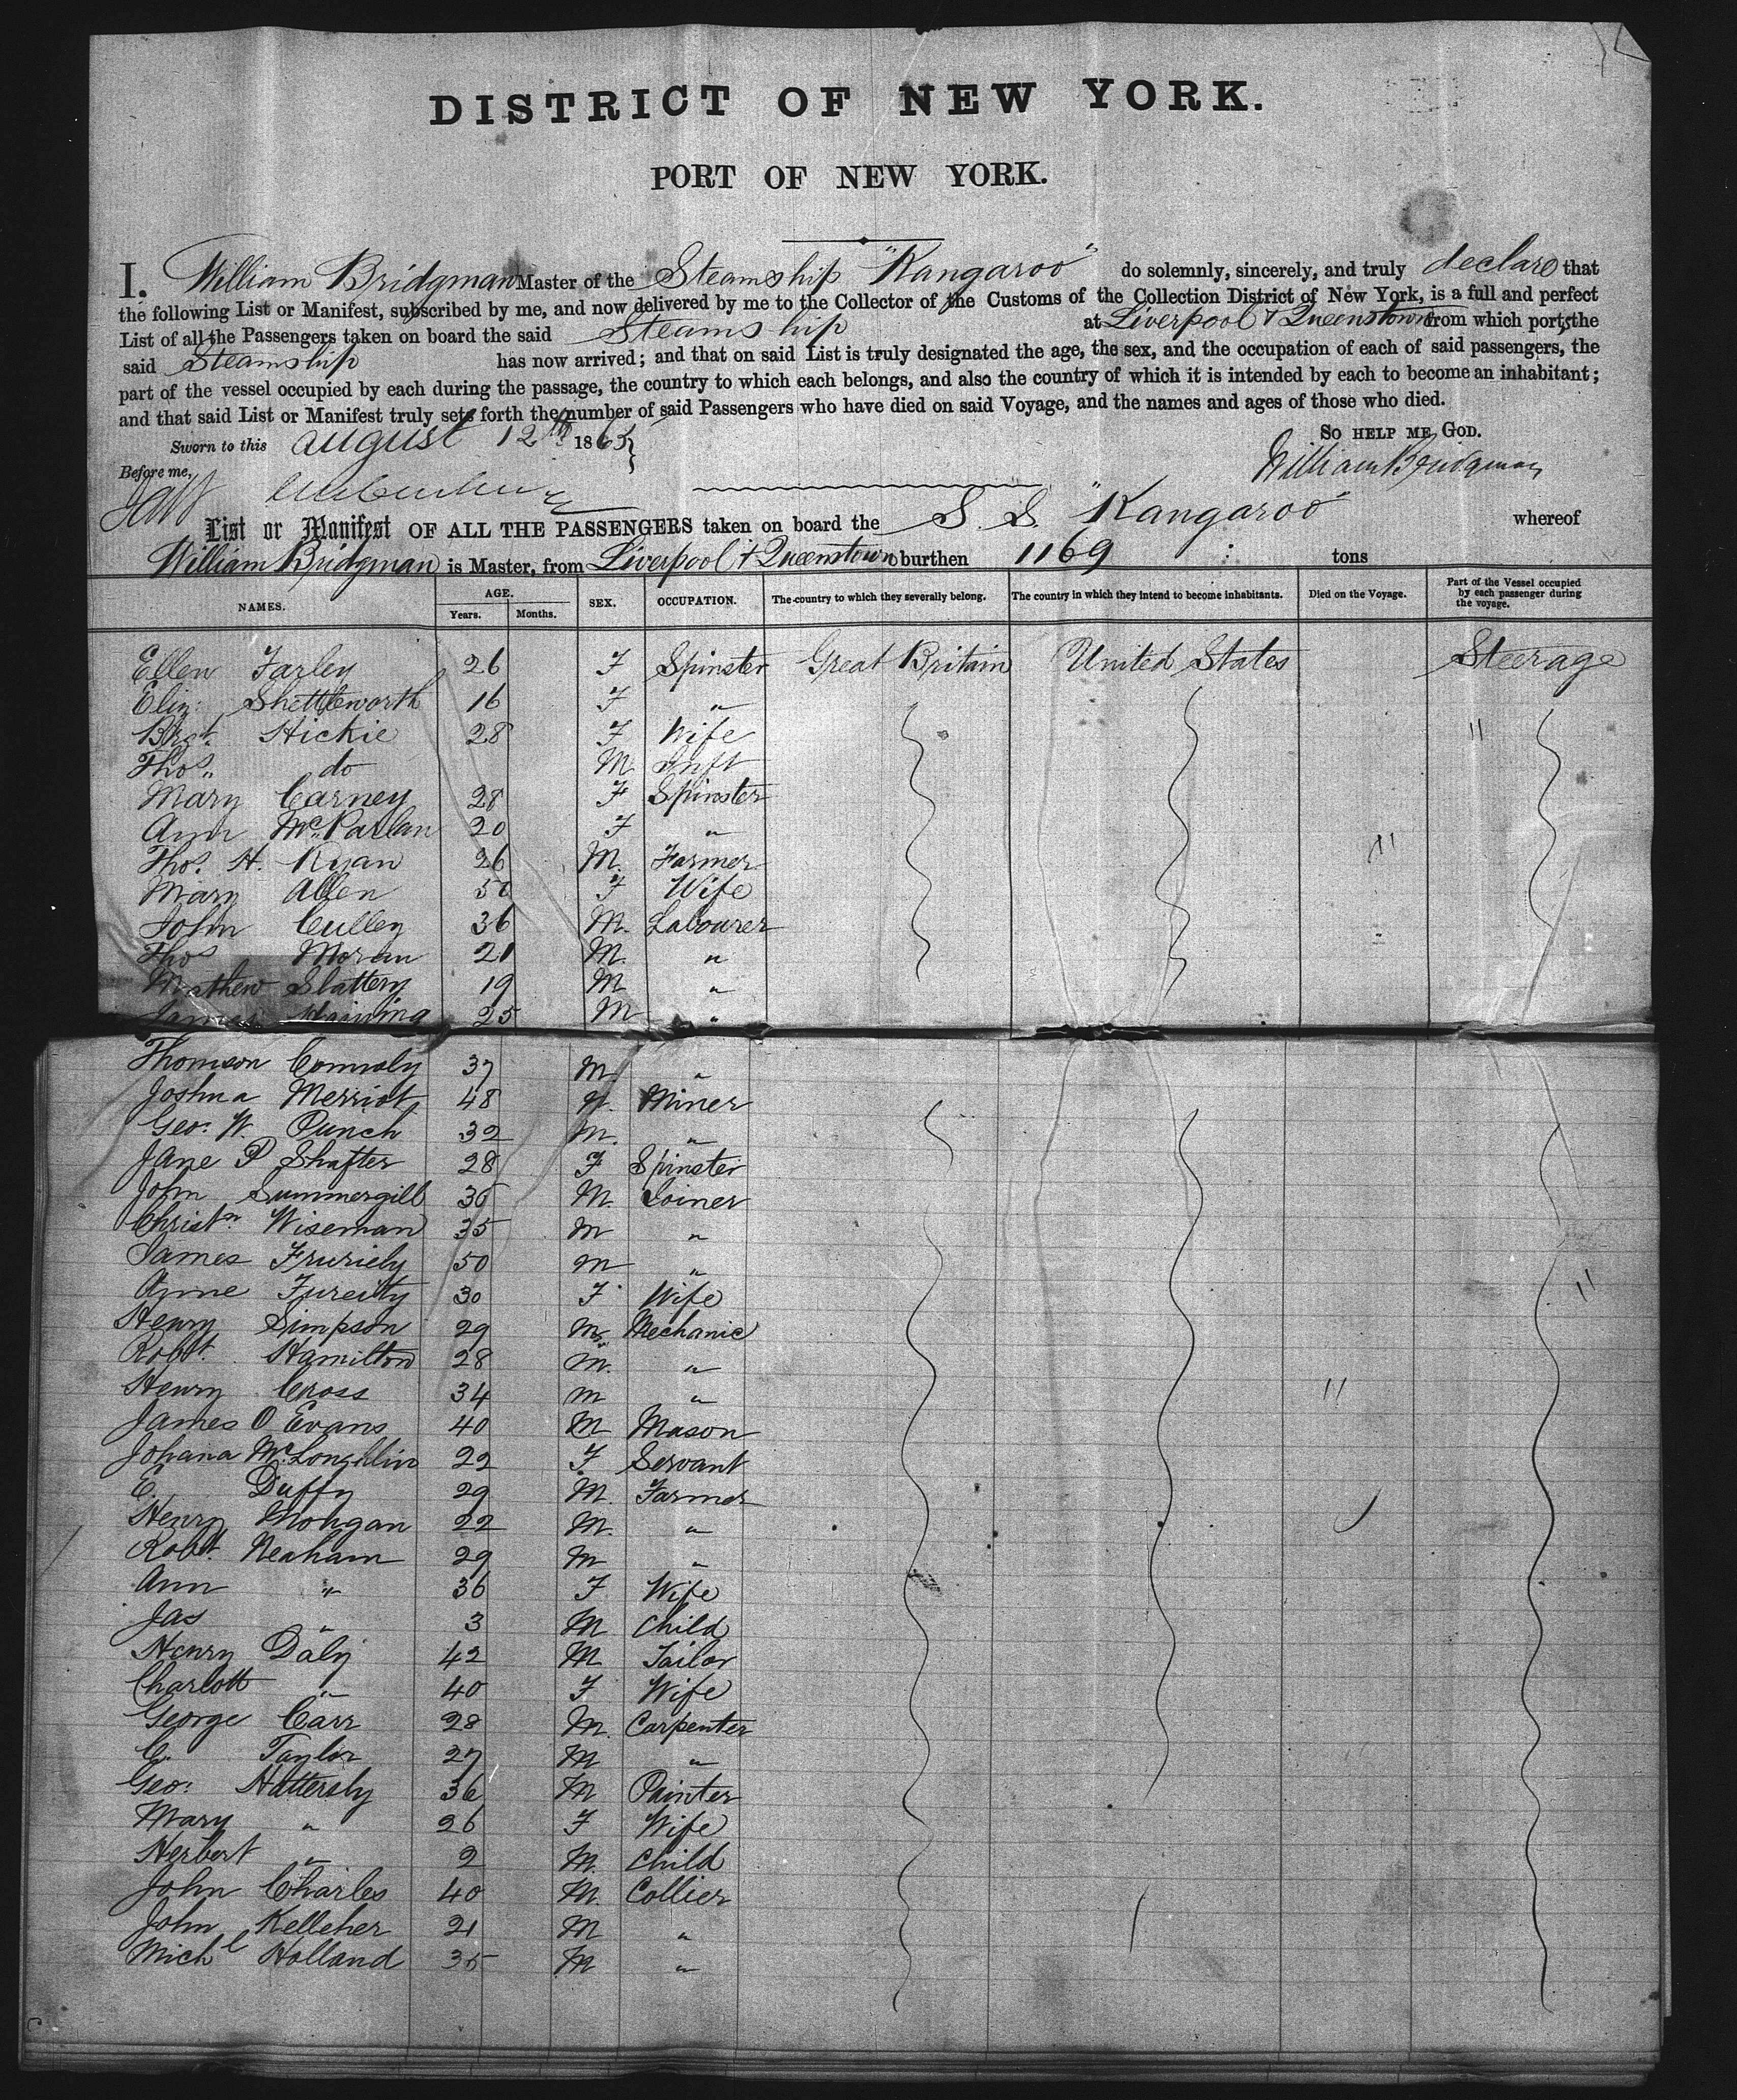 DISTRICT OF NEW YORK.
PORT OF NEW YORK.
I. William Bridgman Master of the Steamship "Kangaroo" do solemnly, sincerely, and truly declare that
the following List or Manifest, subscribed by me, and now delivered by me to the Collector of the Customs of the Collection District of New York, is a full and perfect
List of all the Passengers taken on board the said Steamship at Liverpool & Queenstown from which ports the
said Steamship has now arrived; and that on said List is truly designated the age, the sex, and the occupation of each of said passengers, the
part of the vessel occupied by each during the passage, the country to which each belongs, and also the country of which it is intended by each to become an inhabitant;
and that said List or Manifest truly sets forth the number of said Passengers who have died on said Voyage, and the names and ages of those who died.
Sworn to this august 12th 1865 So help me God.
Before me, William Bridgman
List or Manifest OF ALL THE PASSENGERS taken on board the S. S. "Kangaroo" whereof
William Bridgman is Master, from Liverpool & Queenstown burthen 1169 : tons
NAMES. AGE. Years. Months. SEX. OCCUPATION. The country to which they severally belong. The country in which they intend to become inhabitants. Died on the Voyage. Part of the Vessel occupied by each passenger during the voyage.
Ellen Farley 26 F Spinster Great Britain United States Steerage
Eliz: Shettleworth 16 F "
Brgt. Hickie 28 F Wife "
Thos. do M Inft
Mary Carney 28 F Spinster
Ann McParlan 20 F "
Thos. H. Ryan 26 M. Farmer "
Mary Allen 50 F Wife
John Culley 36 M. Labourer
Thos Moran 21 M. "
Mathew Slattery 19 M "
James 25 M "
Thomson Connoly 37 M "
Joshua Merriot 48 M. Miner
Geo: W. Punch 32 M. "
Jane P Shafter 28 F Spinster
John Summergill 35 M. Joiner
Christn Wiseman 35 M "
James 50 M "
Anne Fureity 30 F Wife "
Henry Simpson 29 M Mechanic
Robt. Hamilton 28 M. "
Henry Cross 34 M " "
James O Evans 40 M Mason
Johana McLonghlin 22 F Servant
E. Duffy 29 M. Farmer
Henry Mohgan 22 M. "
Robt. Neaham 29 M "
Ann " 36 F Wife
Jas " 3 M Child
Henry Daly 42 M Tailor
Charlott " 40 F Wife
George Carr 28 M. Carpenter
C. Taylor 27 M "
Geo: Hattersly 36 M Painter
Mary " 26 F Wife
Herbert " 2 M. Child
John Charles 40 M. Collier
John Kelleher 21 M "
Michl Holland 35 M "